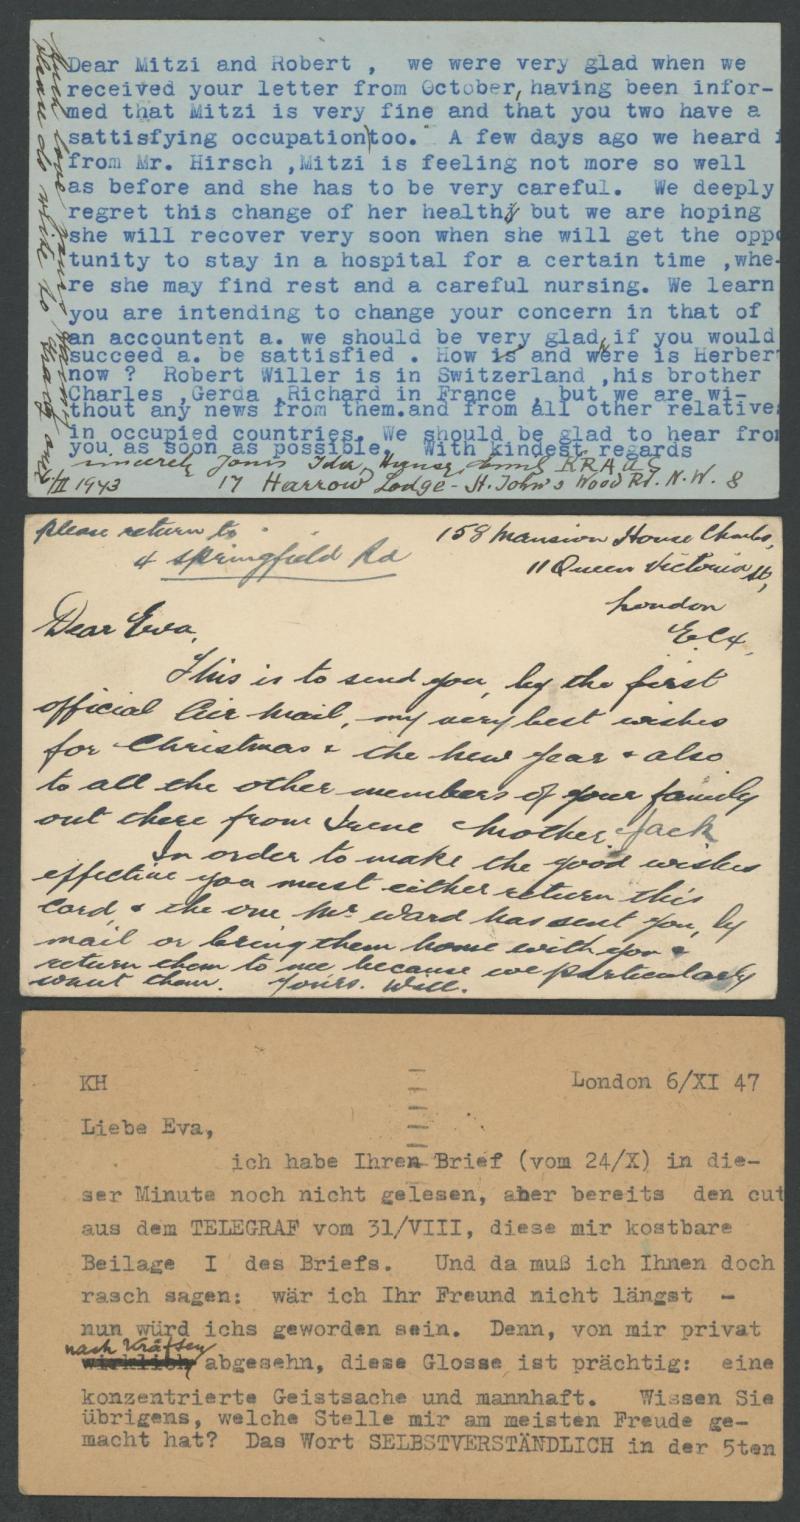 Dear Mitzi and Robert , we were very glad when we
received your letter from October, having been infor-
med that Mitzi is very fine and that you two have a
sattisfying occupation too. A few days ago we heard
from Mr. Hirsch ,Mitzi is feeling not more so well
as before and she has to be very careful. We deeply
regret this change of her health, but we are hoping
she will recover very soon when she will get the oppo
tunity to stay in a hospital for a certain time ,whe-
re she may find rest and a careful nursing. We learn
you are intending to change your concern in that of
an accountent a. we should be very glad, if you would
succeed a. be sattisfied . How is and where is Herber
now ? Robert Willer is in Switzerland ,his brother
Charles ,Gerda ,Richard in France , but we are wi-
thout any news from them.and from all other relative
in occupied countries. We should be glad to hear from
you as soon as possible. With kindest regards
sincerely Yours Ida,
/II 1943 17 Harrow Lodge - St. John's Wood Rd. N.W. 8
please return to
4 Springfield Rd
158 Mansion House Chmbs,
11 Queen Victoria St,
London
E.C.4.
Dear Eva,
This is to send you, by the first
official Air Mail, my very best wishes
for Christmas & the New Year & also
to all the other members of your family
out there from Irene Mother Jack
In order to make the good wishes
effective you must either return this
Card, & the one Mr Ward has sent you, by
mail or bring them home with you &
return them to me because we particularly
want them. Yours. Will.
KH London 6/XI 47
Liebe Eva,
ich habe Ihren Brief (vom 24/X) in die-
ser Minute noch nicht gelesen, aber bereits den cut
aus dem TELEGRAF vom 31/VIII, diese mir kostbare
Beilage I des Briefs. Und da muß ich Ihnen doch
rasch sagen: wär ich Ihr Freund nicht längst -
nun würd ichs geworden sein. Denn, von mir privat
nach Kräften
wirklich abgesehn, diese Glosse ist prächtig: eine
konzentrierte Geistsache und mannhaft. Wissen Sie
übrigens, welche Stelle mir am meisten Freude ge-
macht hat? Das Wort SELBSTVERSTÄNDLICH in der 5ten